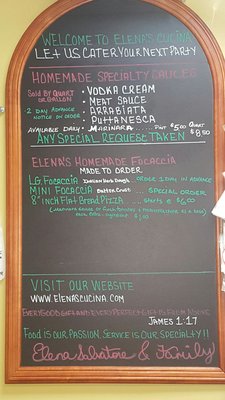 WELCOME TO ELENA'S CUCINA
LET US CATER YOUR NEXT PARTY
HOMEMADE SPECIALTY SAUCES
SOLD BY QUART OR GALLON
2 DAY ADVANCE NOTICE ON ORDER
• VODKA CREAM
• MEAT SAUCE
• ARRABIATA
• PUTTANESCA
AVAILABLE DAILY • MARINARA .... PINT $5.00 QUART $8.50
ANY SPECIAL REQUEST TAKEN
ELENA'S HOMEMADE FOCACCIA
MADE TO ORDER
LG FOCACCIA ORDER 1 DAY IN ADVANCE
MINI FOCACCIA ... SPECIAL ORDER
8" INCH FLAT BREAD PIZZA .... STARTS @ $6.00
VISIT OUR WEBSITE
WWW.ELENASCUCINA.COM
EVERY GOOD GIFT AND EVERY PERFECT GIFT IS FROM ABOVE
JAMES 1:17
FOOD IS OUR PASSION, SERVICE IS OUR SPECIALTY!!
Elena Salvatore & Family